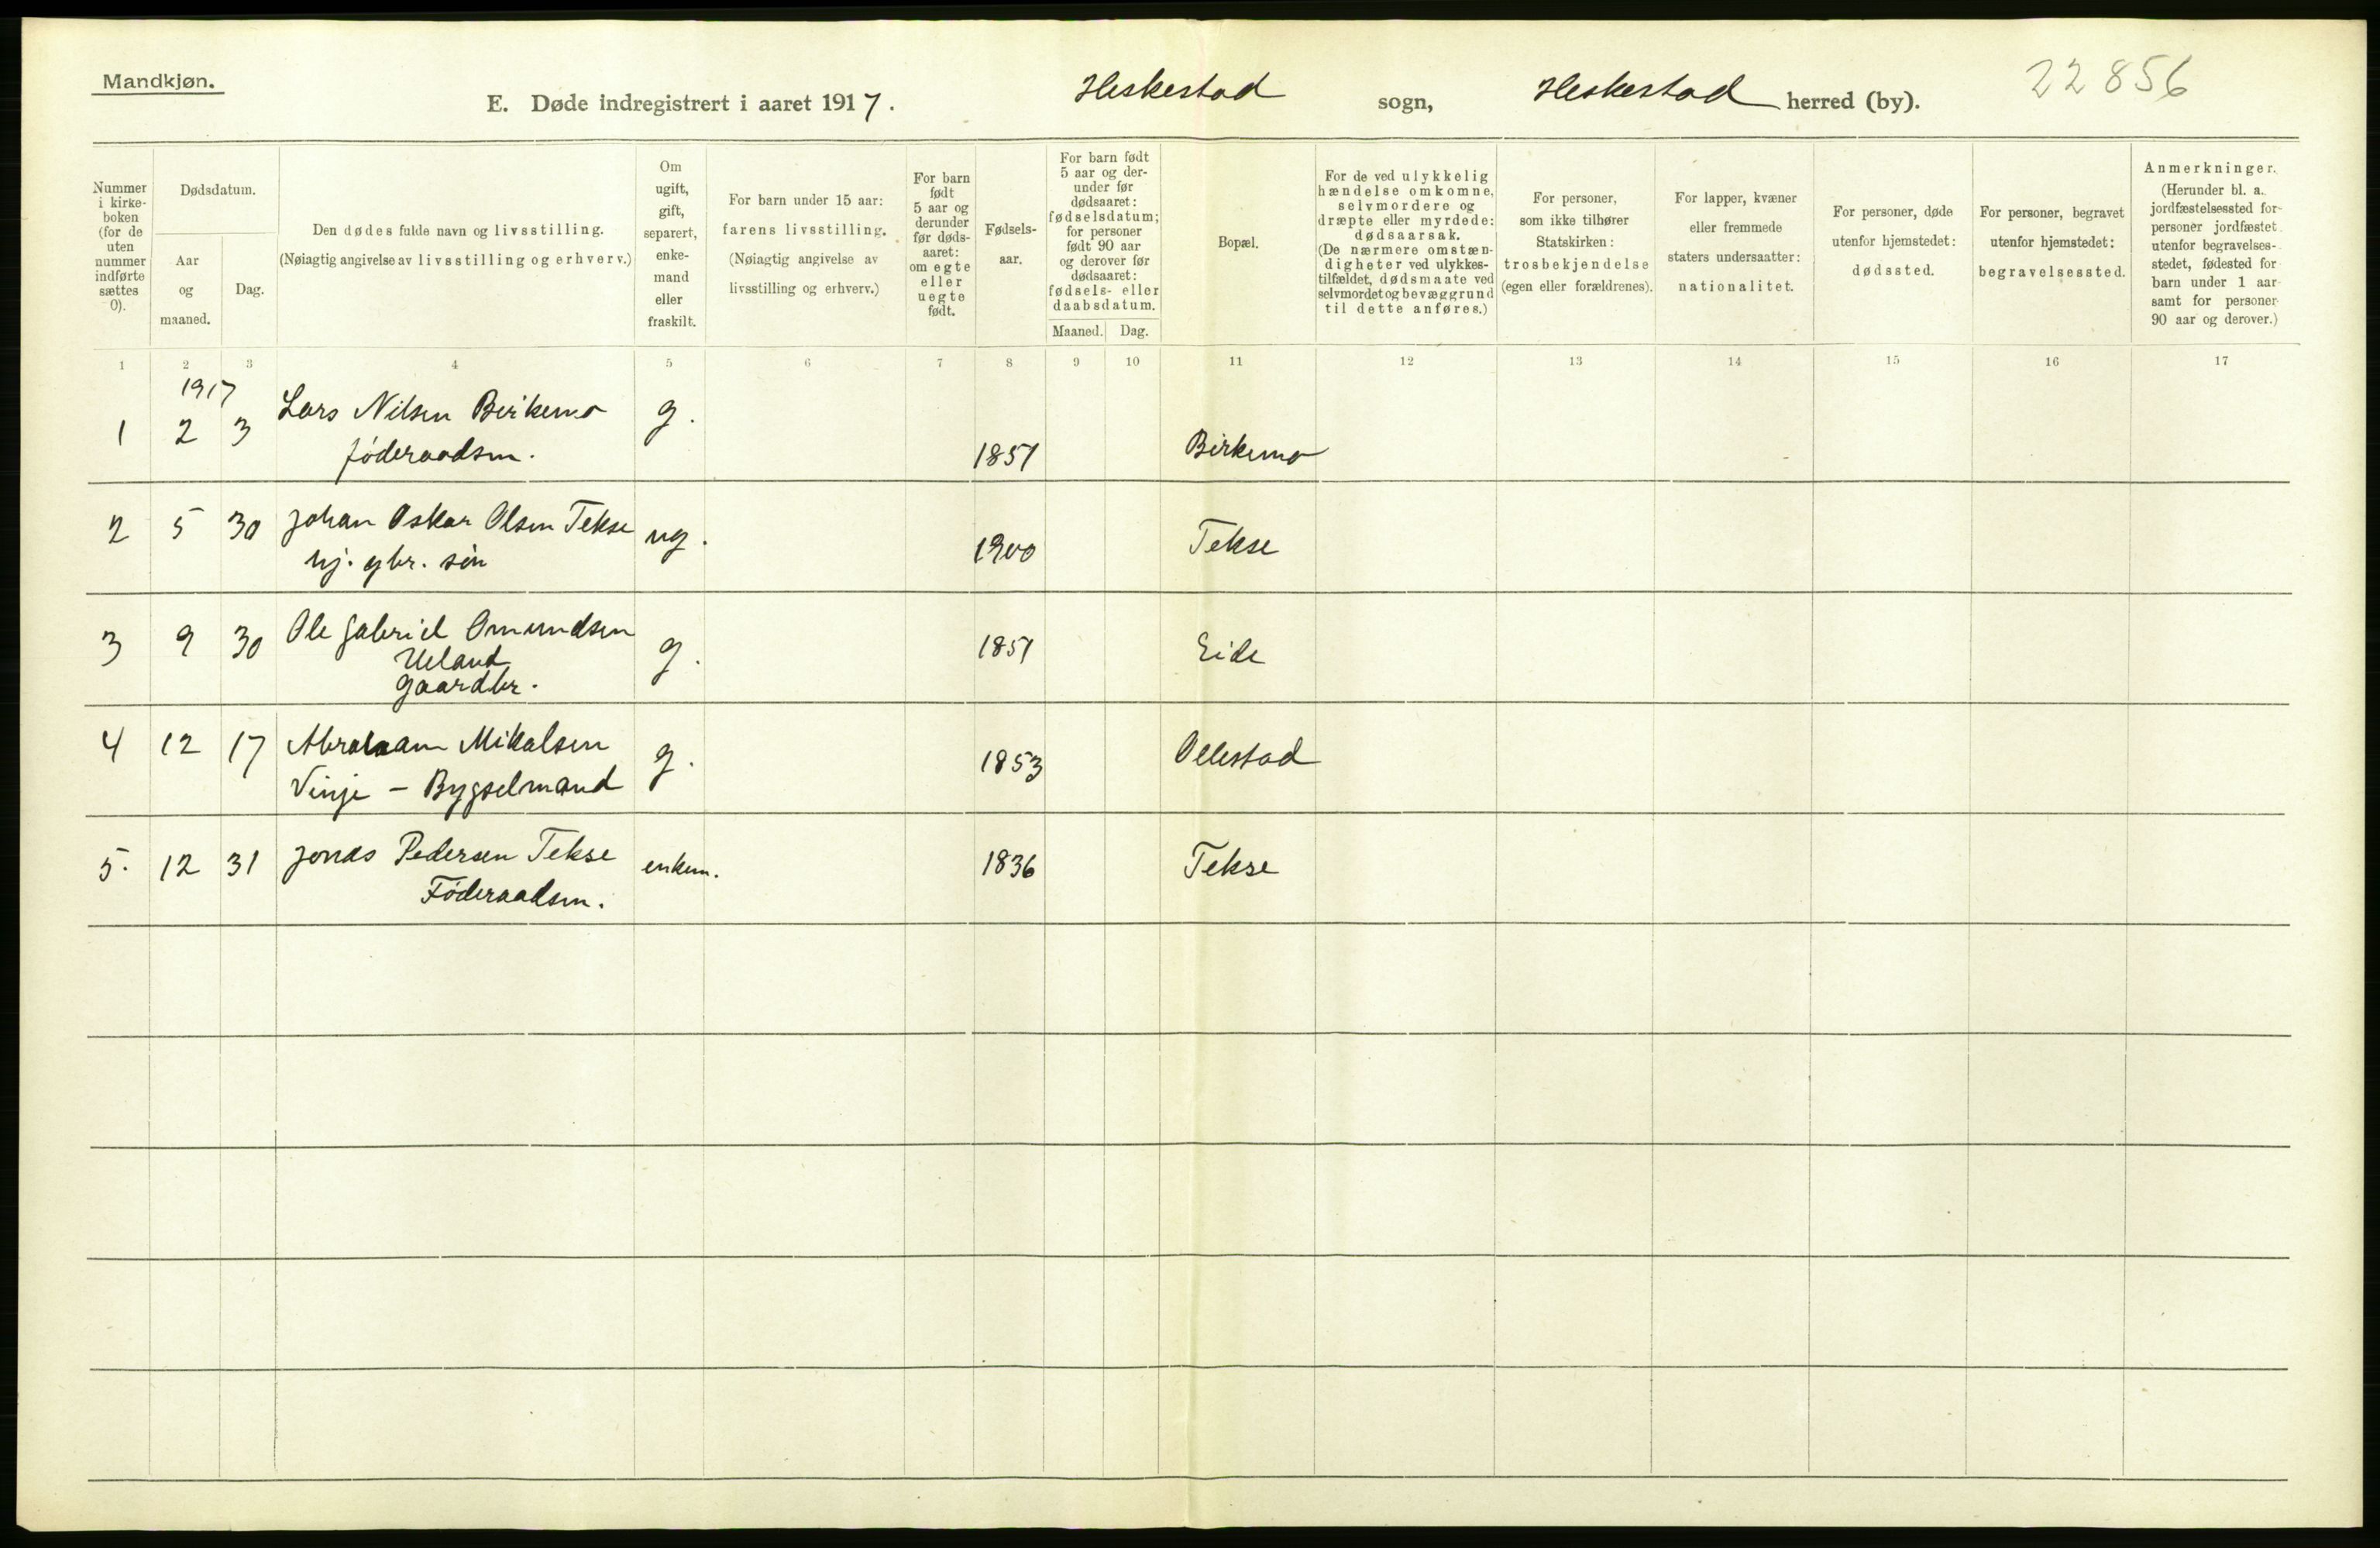 Mandkjøn.
E. Døde indregistrert i aaret 1917. Heskestad sogn, Heskestad herred (by). 22856
Nummer i kirke-boken (for de uten nummer indførte sættes 0).
Dødsdatum.
Aar og maaned.
Dag.
Den dødes fulde navn og livsstilling.
(Nøiagtig angivelse av livsstilling og erhverv.)
Om ugift, gift, separert, enke-mand eller fraskilt.
For barn under 15 aar:
farens livsstilling.
(Nøiagtig angivelse av livsstilling og erhverv.)
For barn født 5 aar og derunder før døds-aaret: om egte eller uegte født.
Fødsels-aar.
For barn født 5 aar og der-under før dødsaaret: fødselsdatum; for personer født 90 aar og derover før dødsaaret: fødsels- eller daabsdatum.
Maaned. Dag.
Bopæl.
For de ved ulykkelig hændelse omkomne, selvmordere og dræpte eller myrdede: dødsaarsak. (De nærmere omstæn-digheter ved ulykkes-tilfældet, dødsmaate ved selvmordet og bevæggrund til dette anføres.)
For personer, som ikke tilhører Statskirken: trosbekjendelse (egen eller forældrenes).
For lapper, kvæner eller fremmede staters undersaatter: nationalitet.
For personer, døde utenfor hjemstedet: dødssted.
For personer, begravet utenfor hjemstedet: begravelsessted.
Anmerkninger. (Herunder bl. a. jordfæstelsessted for personer jordfæstet utenfor begravelses-stedet, fødested for barn under 1 aar samt for personer 90 aar og derover.)
1 2 3 4 5 6 7 8 9 10 11 12 13 14 15 16 17
1917
1 2 3 Lars Nilsen Birkemo g. 1851 Birkemo
føderaadsm.
2 5 30 Johan Oskar Olsen Tekse ug. 1900 Tekse
hj. gbr. søn
3 9 30 Ole Gabriel Omundsen g. 1851 Eide
Ueland
gaardbr.
4 12 17 Abraham Mikalsen g. 1853 Ollestad
Vinje - Bygselmand
5. 12 31 Jonas Pedersen Tekse enkem. 1836 Tekse
Føderaadsm.